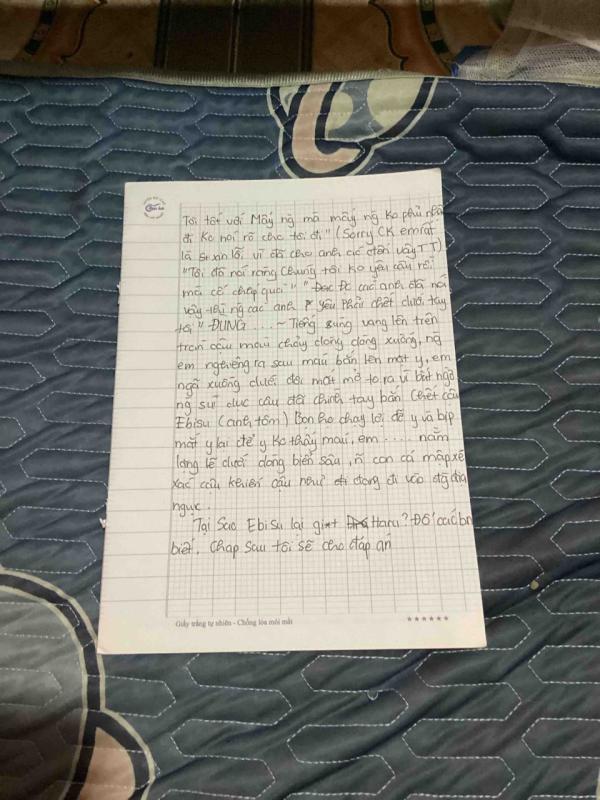 Tôi tốt với Mấy ng mà mấy ng ko phủ nhận
đi ko nói rõ cho tôi đi" (Sorry CK em rất
là so xin lỗi vì đã cho anh ác đến vậy TT)
"Tôi đã nói rằng Chúng tôi ko yêu cậu rồi
mà cố chấp quá" " Đc các anh đã nói
vậy thì ng các anh yêu phải chết dưới tay
tôi" ĐÙNG.....~ Tiếng súng vang lên trên
trán cậu máu chảy dòng dòng xuống, ng
em nghiêng ra sau máu bắn lên mặt y, em
ngã xuống dưới đôi mắt mở to ra vì bất ngờ
ng sự đục cậu đời chính tay bắn chết cậu
Ebisu (anh tôm) Bọn họ chạy lới để y và bịp
mắt y lại để y ko thấy máu, em .... nằm
lặng lẽ dưới dòng biển sâu, ñ con cá mập xé
xác cậu khiến cậu như đi đang đi vào địa
ngục.
Tại Sao Ebisu lại giết Haru? Đố các bn
biết. Chap sau tôi sẽ cho đáp án
Giấy trắng tự nhiên - Chống lóa mỏi mắt